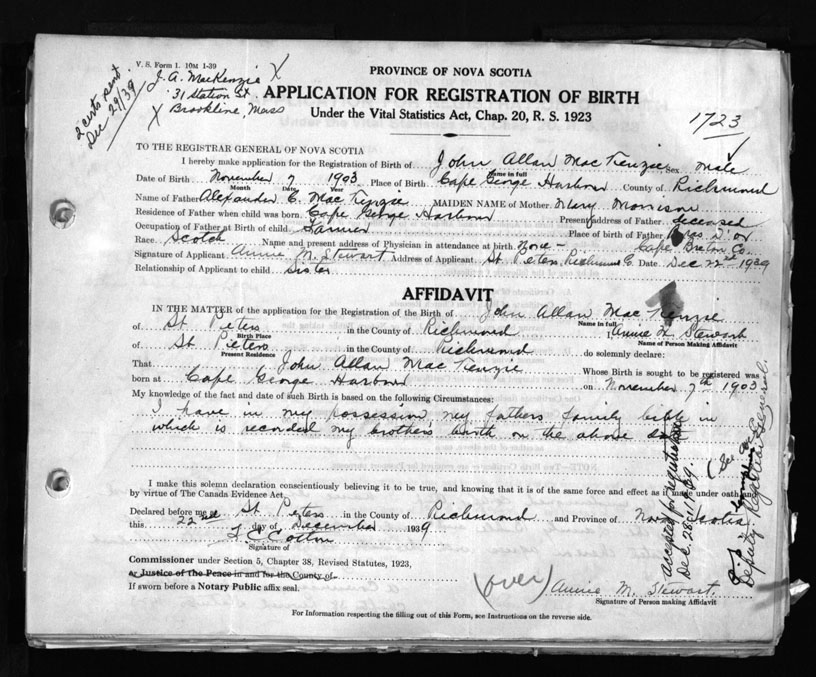 V. S. Form 1. 10M 1-39
J. A. MacKenzie X
31 Station St.
X Brookline, Mass
2 certs sent
Dec 29/39
PROVINCE OF NOVA SCOTIA
APPLICATION FOR REGISTRATION OF BIRTH
Under the Vital Statistics Act, Chap. 20, R. S. 1923
1723
TO THE REGISTRAR GENERAL OF NOVA SCOTIA
I hereby make application for the Registration of Birth of John Allan MacKenzie Sex male
Name in full
Date of Birth November 7 1903 Place of Birth Cape George Harbour County of Richmond
Month Date Year
Name of Father Alexander C. MacKenzie MAIDEN NAME of Mother Mary Morrison
Residence of Father when child was born Cape George Harbour Present address of Father deceased
Occupation of Father at Birth of child Farmer Place of birth of Father Bras D'or
Race Scotch Name and present address of Physician in attendance at birth None - Cape Breton Co.
Signature of Applicant Annie M. Stewart Address of Applicant St Peters, Richmond C. Date Dec 22nd 1939
Relationship of Applicant to child Sister
AFFIDAVIT
IN THE MATTER of the application for the Registration of the Birth of John Allan MacKenzie
Name in full
of St Peters in the County of Richmond Annie Stewart
Birth Place Name of Person Making Affidavit
of St Peters in the County of Richmond do solemnly declare:
Present Residence
That John Allan MacKenzie Whose Birth is sought to be registered was
born at Cape George Harbour on November 7th 1903
My knowledge of the fact and date of such Birth is based on the following Circumstances:
I have in my possession, my fathers family bible in
which is recorded my brothers birth on the above date
I make this solemn declaration conscientiously believing it to be true, and knowing that it is of the same force and effect as if made under oath and
by virtue of The Canada Evidence Act.
Declared before me at St Peters in the County of Richmond and Province of Nova Scotia
this 22nd day of December 1939
Signature of
Commissioner under Section 5, Chapter 38, Revised Statutes, 1923,
or Justice of the Peace in and for the County of
If sworn before a Notary Public affix seal.
(over)
Annie M. Stewart
Signature of Person making Affidavit
Accepted for registration
Dec. 28th 1939
Deputy Registrar General
For Information respecting the filling out of this Form, see Instructions on the reverse side.